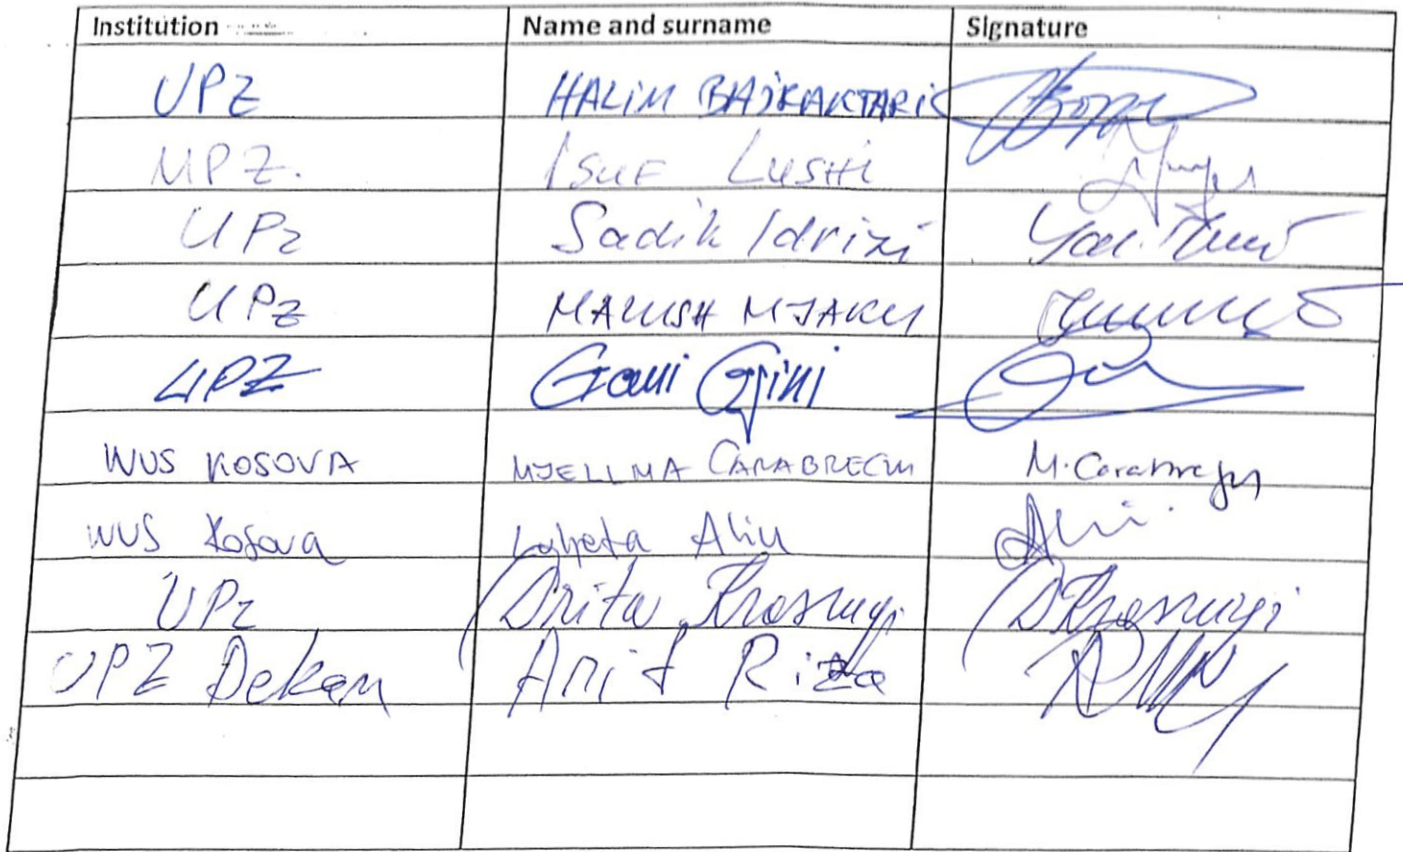 Institution Name and surname Signature
UPZ HALIM BAJRAKTARI
UPZ. ISUF LUSHI
UPz Sadik Idrizi
UPz MALUSH MJAKU
UPZ Gani Gjini
WUS KOSOVA MJELLMA CARABREGU M. Carabregu
WUS Kosova Aliu
UPz Drita Kroshnyi
UPZ Dekan Arif Riza